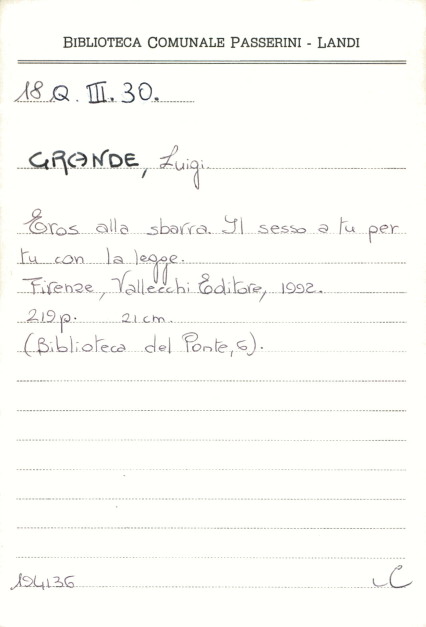 BIBLIOTECA COMUNALE PASSERINI - LANDI
18 Q. III. 30.
GRANDE, Luigi.
Eros alla sbarra. Il sesso a tu per
tu con la legge.
Firenze, Vallecchi Editore, 1992.
219 p. 21 cm.
(Biblioteca del Ponte, 6).
194136